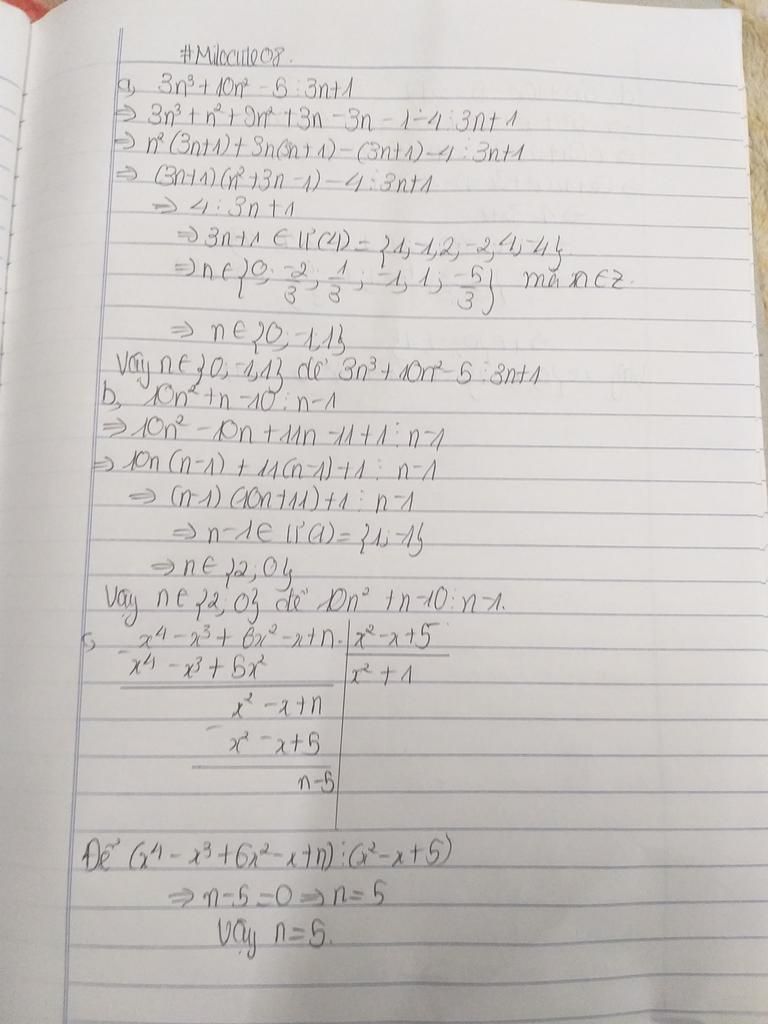 #Milocute08.
a, 3n³ + 10n² - 5 ⋮ 3n+1
⇒ 3n³ + n² + 9n² + 3n - 3n - 1 - 4 ⋮ 3n+1
⇒ n²(3n+1) + 3n(3n+1) - (3n+1) - 4 ⋮ 3n+1
⇒ (3n+1)(n²+3n-1) - 4 ⋮ 3n+1
⇒ 4 ⋮ 3n+1
⇒ 3n+1 ∈ Ư(4) = {1; -1; 2; -2; 4; -4}
⇒ n ∈ {0; -2/3; 1/3; -1; 1; -5/3} mà n ∈ Z.
⇒ n ∈ {0; -1; 1}
Vậy n ∈ {0; -1; 1} để 3n³ + 10n² - 5 ⋮ 3n+1
b, 10n² + n - 10 ⋮ n-1
⇒ 10n² - 10n + 11n - 11 + 1 ⋮ n-1
⇒ 10n(n-1) + 11(n-1) + 1 ⋮ n-1
⇒ (n-1)(10n+11) + 1 ⋮ n-1
⇒ n-1 ∈ Ư(1) = {1; -1}
⇒ n ∈ {2; 0}
Vậy n ∈ {2; 0} để 10n² + n - 10 ⋮ n-1.
c, x⁴ - x³ + 6x² - x + n | x² - x + 5
- x⁴ - x³ + 5x² | x² + 1
x² - x + n
- x² - x + 5
n - 5
Để (x⁴ - x³ + 6x² - x + n) ⋮ (x² - x + 5)
⇒ n - 5 = 0 ⇒ n = 5
Vậy n = 5.